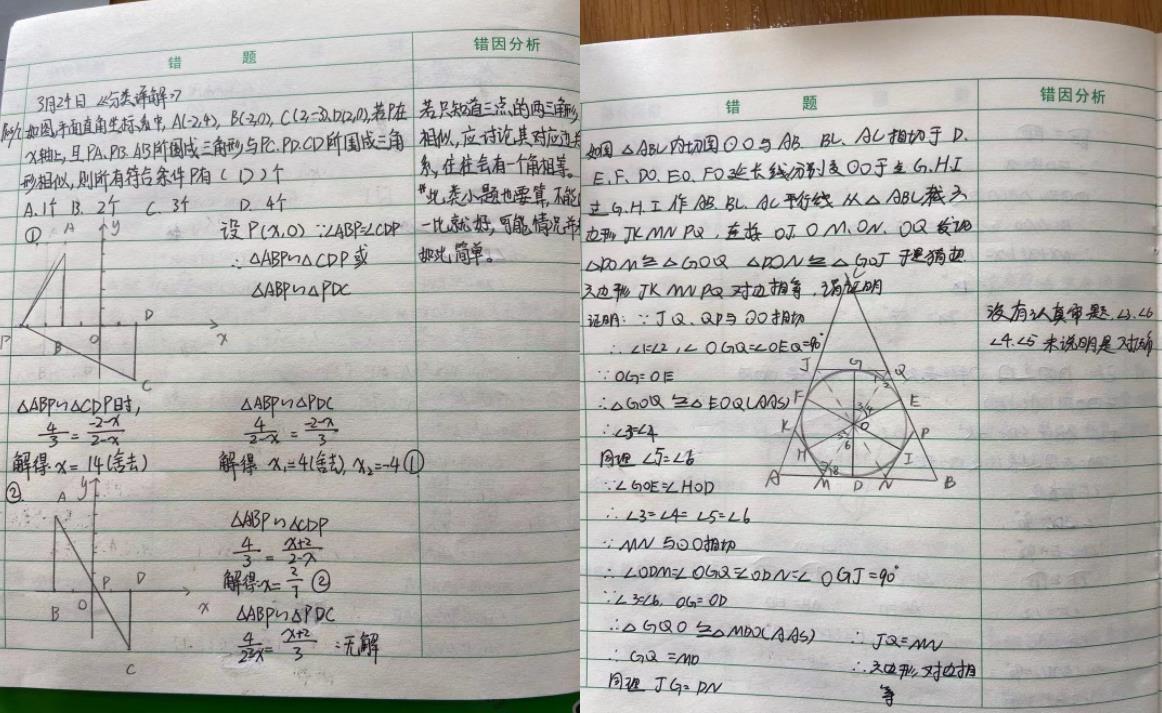 错 题
错因分析
3月24日 《分类详解》
如图,平面直角坐标系中, A(-2,4), B(-2,0), C(2,-3), D(2,0), 若P在
x轴上, 且PA、PB、AB所围成三角形与PC、PD、CD所围成三角
形相似, 则所有符合条件P有 ( D ) 个
A. 1个 B. 2个 C. 3个 D. 4个
若只知道三点的两三角形
相似, 应讨论其对应边关
系, 往往会有一个角相等。
"此类小题也要算, 不能
一比就好, 可能情况并
如此简单。
①
A y
P B O D x
C
设 P(x,0) ∵∠ABP=∠CDP
∴△ABP∽△CDP或
△ABP∽△PDC
△ABP∽△CDP时,
4/3 = -2-x/2-x
解得: x=14(舍去)
△ABP∽△PDC
4/2-x = -2-x/3
解得 x₁=4(舍去), x₂=-4 ①
②
A y
B O P D x
C
△ABP∽△CDP
4/3 = x+2/2-x
解得: x=2/7 ②
△ABP∽△PDC
4/2-x = x+2/3 ∴无解
错 题
错因分析
如图 △ABC内切圆⊙O与AB、BC、AC相切于D、
E、F、DO、EO、FO延长线分别交⊙O于点G、H、I
过G、H、I作AB、BC、AC平行线 从△ABC截六
边形JKMNPQ, 连接OJ、OM、ON、OQ 发现
△DOM≌△GOQ △DON≌△GOJ 于是猜想
六边形JKMNPQ对边相等, 请证明
证明: ∵JQ、QP与⊙O相切
∴∠1=∠2, ∠OGQ=∠OEQ=90°
∵OG=OE
∴△GOQ≌△EOQ(AAS)
∴∠3=∠4
同理 ∠5=∠6
∵∠GOE=∠HOD
∴∠3=∠4=∠5=∠6
∵MN与⊙O相切
∴∠ODM=∠OGQ=∠ODN=∠OGJ=90°
∵∠3=∠6, OG=OD
∴△GQO≌△MDO(AAS)
∴GQ=MD
同理 JG=DN
∴JQ=MN
∴六边形对边相
等
C
J G Q
1 2
F E
3 4
K O P
5 6
H I
7 8
A M D N B
没有认真审题, ∠3、∠6
∠4、∠5来说明是对